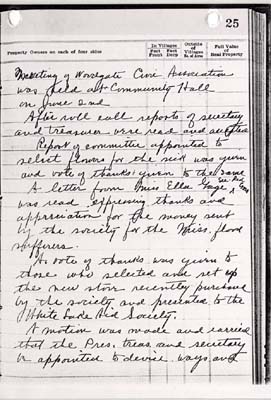 25
Property Owners on each of four sides
In Villages
Outside of Villages
Full Value of Real Property
Feet Front
Feet Deep
No. of Acres
Meeting of Woodgate Civic Association
was held at Community Hall
on June 2nd
After roll call reports of secretary
and treasurer were read and accepted
Report of committee appointed to
select flowers for the sick was given
and vote of thanks given to the same
A letter from Miss Ella Gage
was read expressing thanks and
appreciation for the money sent
by the society for the Miss. flood
sufferers.
A vote of thanks was given to
those who selected and set up
the new stove recently purchased
by the society and presented to the
White Lake Aid Society.
A motion was made and carried
that the Pres, treas, and secretary
be appointed to devise ways and